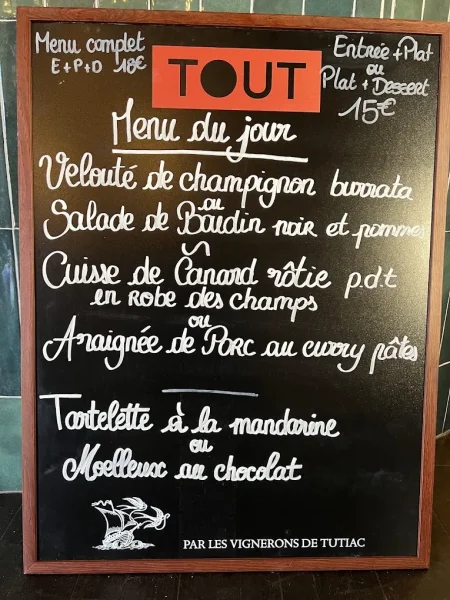 Menu complet
E+P+D 18€
TOUT
Entrée + Plat
ou
Plat + Dessert
15€
Menu du jour
Velouté de champignon burrata
ou
Salade de Boudin noir et pommes
Cuisse de Canard rôtie p.d.t
en Robe des champs
ou
Araignée de Porc au curry pâtes
Tartelette à la mandarine
ou
Moelleux au chocolat
PAR LES VIGNERONS DE TUTIAC